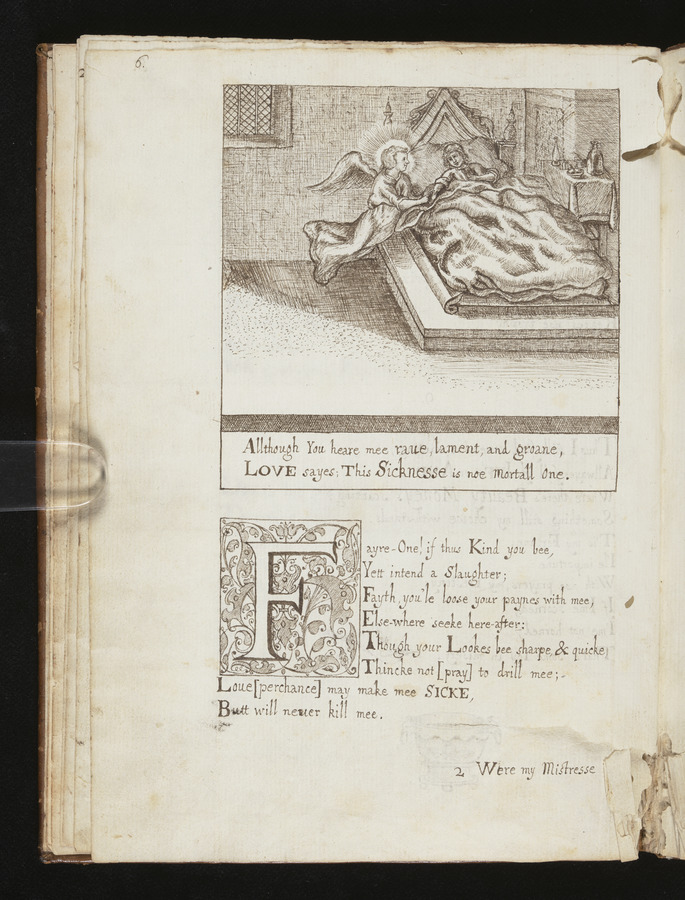 6.
Allthough You heare mee raue, lament, and groane,
LOVE sayes; This Sicknesse is noe mortall One.
Fayre-One! if thus Kind you bee,
Yett intend a Slaughter;
Fayth, you'le loose your paynes with mee,
Else-where seeke here-after:
Though your Lookes bee sharpe, & quicke,
Thincke not [pray] to drill mee;
Loue [perchance] may make mee SICKE,
Butt will neuer kill mee.
2 Were my Mistresse